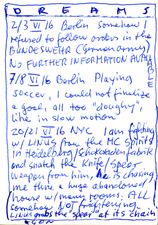 DREAMS
2/3 VI 16 Berlin somehow I
refused to follow orders in the
BUNDESWEHR (German army)
NO FURTHER INFORMATION AVAILABLE
7/8 VI 16 Berlin Playing
soccer, I could not finalize
a goal, all too "doughy",
like in slow motion
20/21 VI 16 NYC I am fighting
w/ LINUS from the MC SPIRITS
in Heidelberg/Schokoladenfabrik
and snatch the knife/spear
weapon from him, he is chasing
me thru a huge abandoned
house w/ many rooms, ALL
somehow NOT frightening,
LINUS grabs the "spear" at its chain